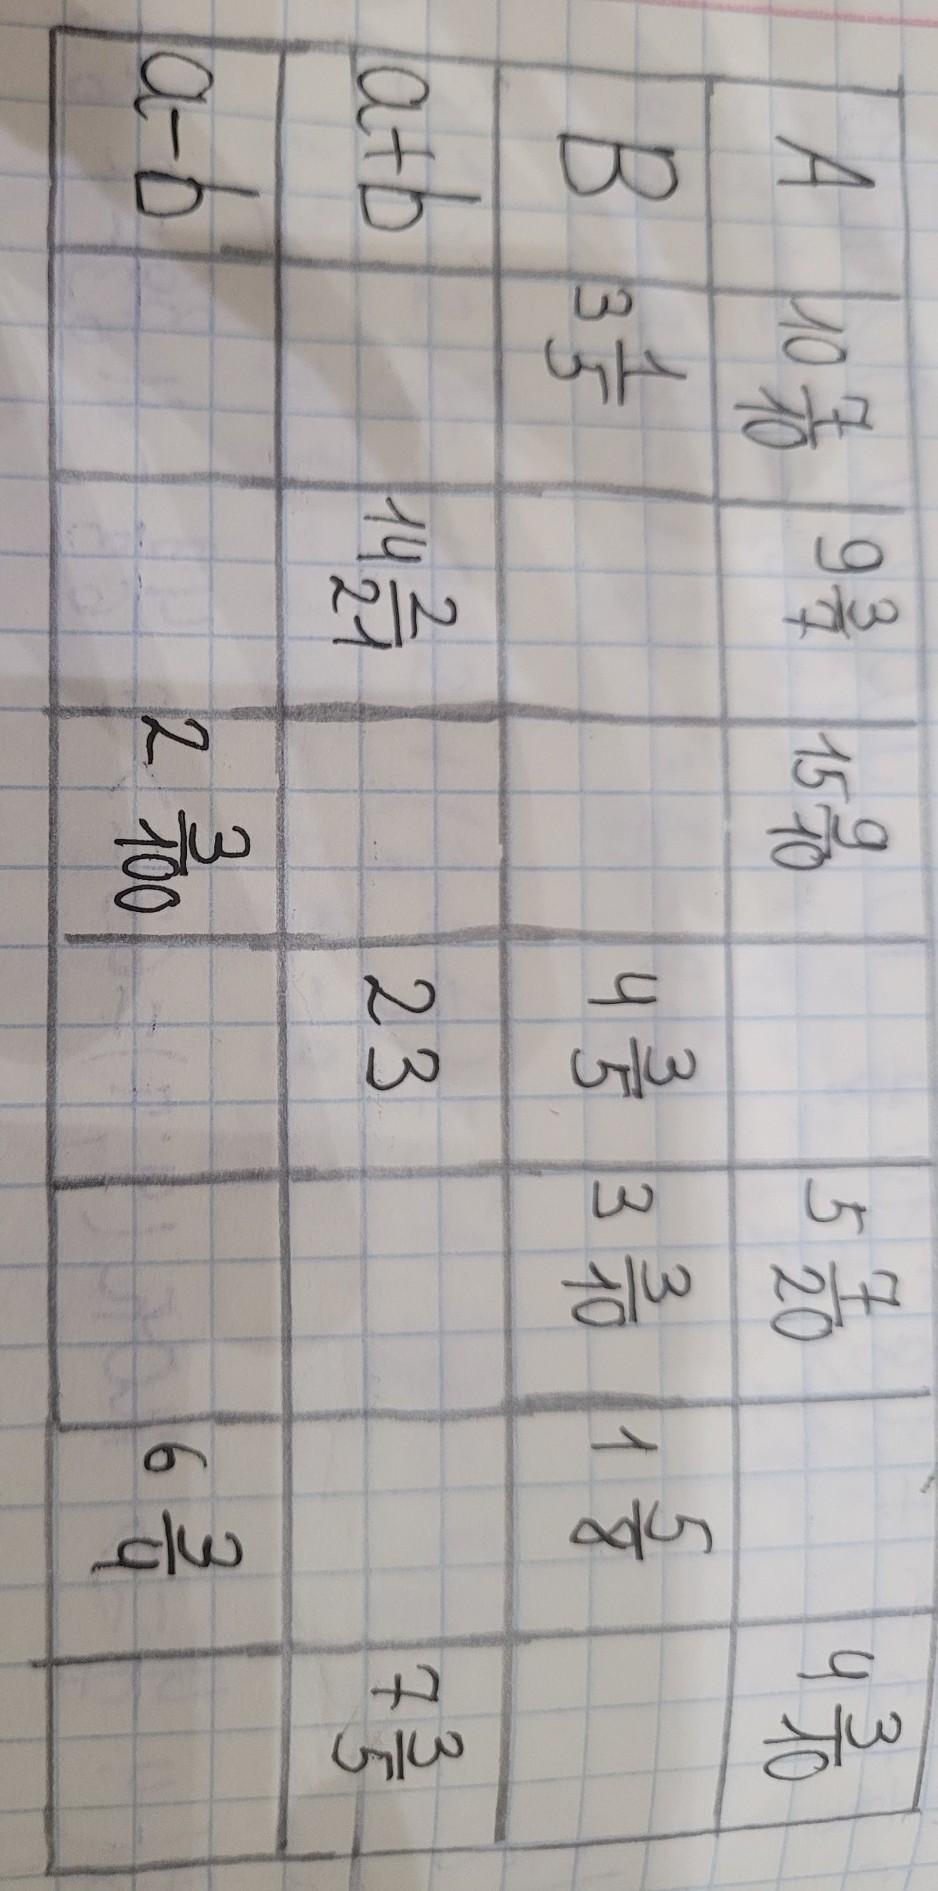 A 10 7/10 9 3/7 15 9/10 5 7/20 4 3/10
B 3 1/5 4 3/5 3 3/10 1 5/8
a+b 14 2/21 23 7 3/5
a-b 2 3/100 6 3/4